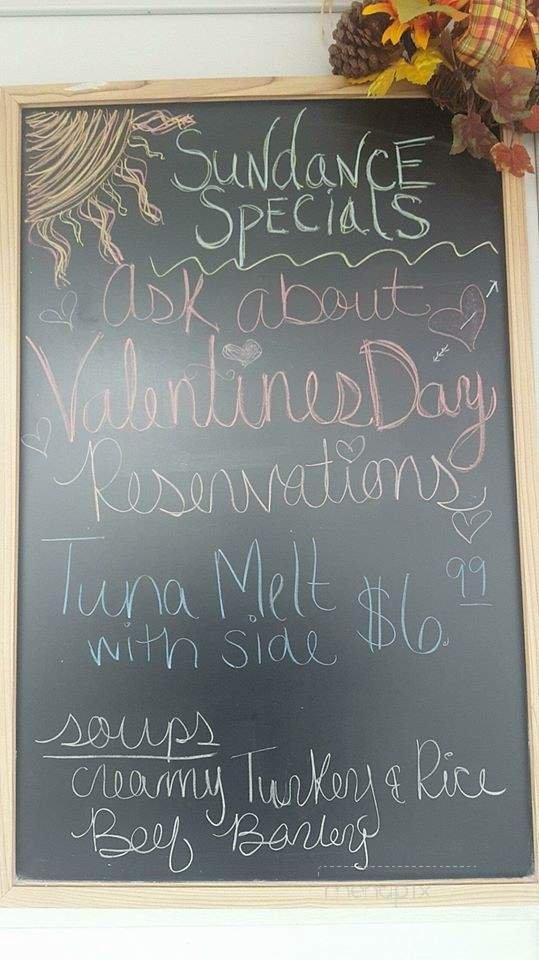 SUNdaNCE
SPECIalS
ask about
Valentines Day
Reservations
Tuna Melt
with side $6.99
soups
creamy Turkey & Rice
Beef Barley
menupix